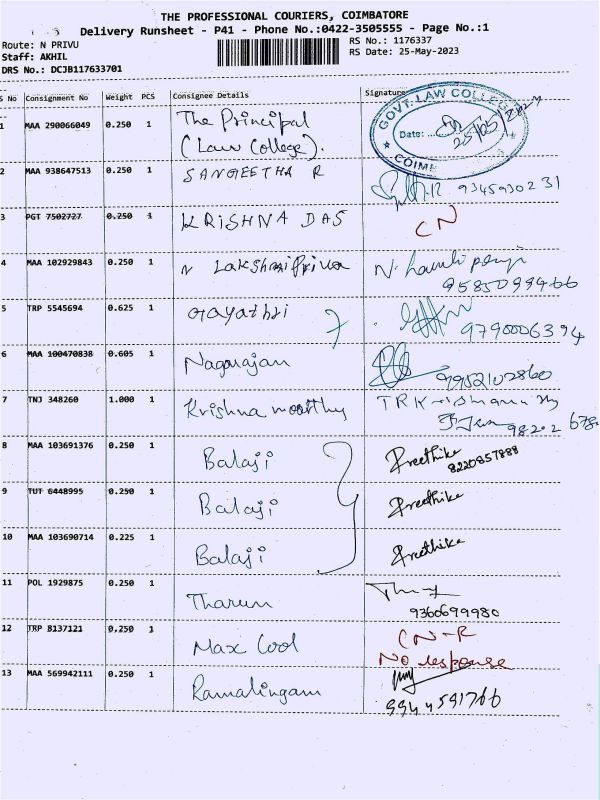 THE PROFESSIONAL COURIERS, COIMBATORE
Delivery Runsheet - P41 - Phone No.:0422-3505555 - Page No.:1
Route: N PRIVU
RS No.: 1176337
Staff: AKHIL
RS Date: 25-May-2023
DRS No.: DCJB117633701
S No Consignment No Weight PCS Consignee Details Signature
1 MAA 290066049 0.250 1 The Principal
(Law College).
GOVT. LAW COLLEGE
Date: ... 25/05/2023
COIMB
2 MAA 938647513 0.250 1 SANGEETHA R
9345930231
3 PGT 7502727 0.250 1 KRISHNA DAS CN
4 MAA 102929843 0.250 1 N LakshmiPriya
9585099466
5 TRP 5545694 0.625 1 Gayathri
9790006394
6 MAA 100470838 0.605 1 Nagarajan
9952102860
7 TNJ 348260 1.000 1 Krishna moorthy
98202 678
8 MAA 103691376 0.250 1 Balaji Preethike
8220857888
9 TUT 6448995 0.250 1 Balaji Preethike
10 MAA 103690714 0.225 1 Balaji Preethike
11 POL 1929875 0.250 1 Tharun
9360699980
12 TRP 8137121 0.250 1 Max Cool CN-R
No response
13 MAA 569942111 0.250 1 Ramalingam
9944591766